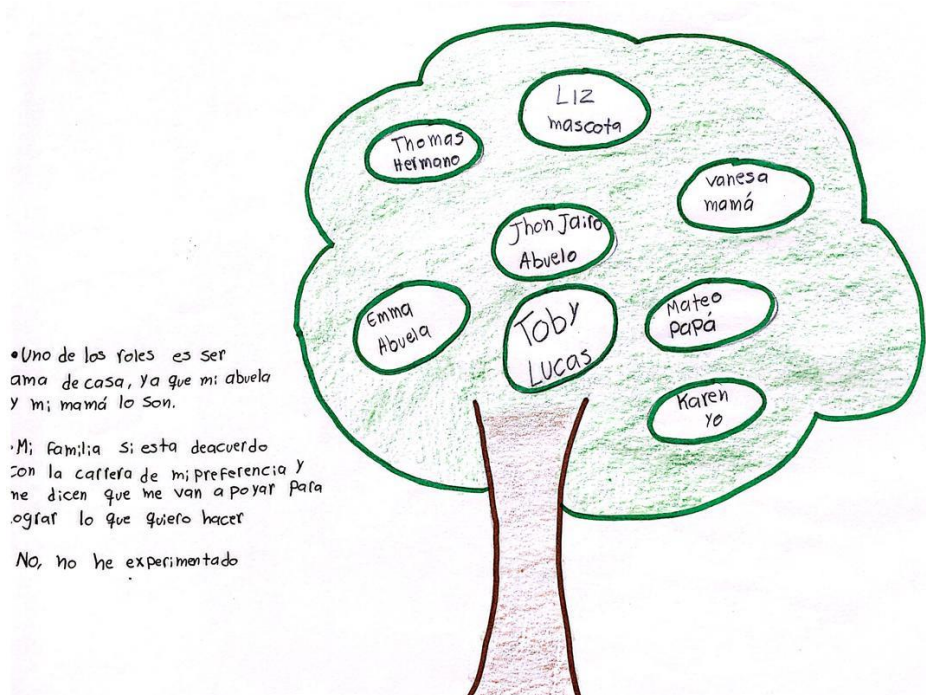 Liz
mascota
Thomas
Hermano
vanesa
mamá
Jhon Jairo
Abuelo
Emma
Abuela
Toby
Lucas
Mateo
papá
Karen
yo
•Uno de los roles es ser
ama de casa, ya que mi abuela
y mi mamá lo son.
•Mi familia si esta deacuerdo
con la carrera de mi preferencia y
me dicen que me van a poyar para
lograr lo que quiero hacer
No, no he experimentado